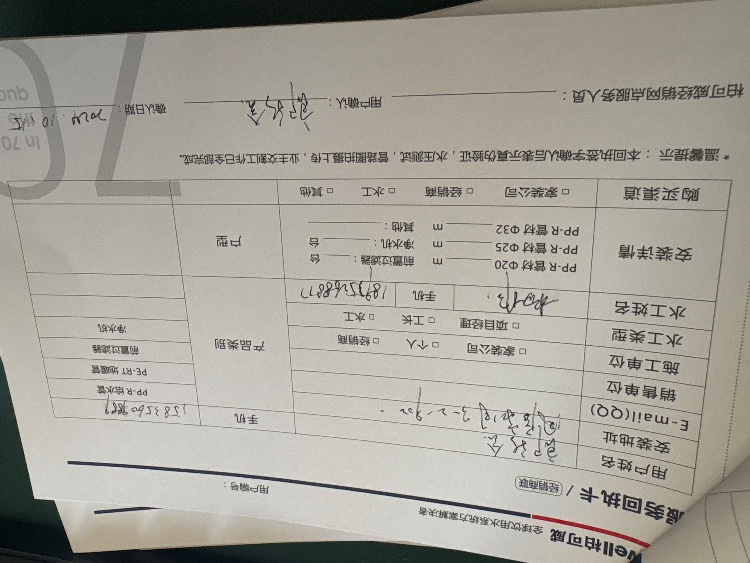 Well柏可威 全球饮用水系统方案解决者
服务回执卡 / 经销商联
用户编号：
用户姓名
手机
安装地址 3-2-902
E-mail(QQ)
销售单位
施工单位 □ 家装公司 □ 个人 □ 经销商
水工类型 □ 项目经理 □ 工长 □ 水工
水工姓名 手机
产品类别
PP-R 给水管
PE-RT 地暖管
前置过滤器
净水机
安装详情
PP-R 管材 Φ20 m 前置过滤器： 台
PP-R 管材 Φ25 m 净水机： 台
PP-R 管材 Φ32 m 其他：
户型
购买渠道 □ 家装公司 □ 经销商 □ 水工 □ 其他
* 温馨提示：本回执签字确认后表示真伪验证，水压测试，管路图拍摄上传，业主交割工作已全部完成。
柏可威经销网点服务人员： 用户确认： 确认日期：2024.10.15
70
In 70